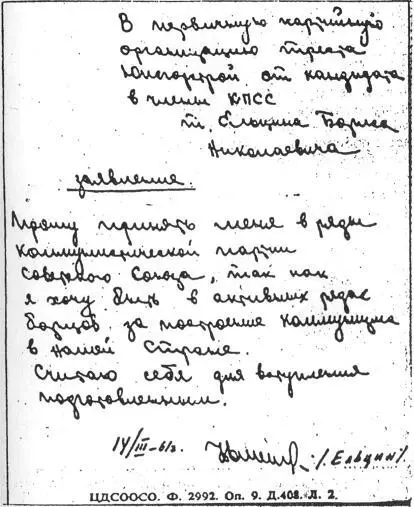 В первичную партийную
организацию треста
Южгорстрой от кандидата
в члены КПСС
т. Ельцина Бориса
Николаевича
заявление.
Прошу принять меня в ряды
Коммунистической партии
Советского Союза, так как
я хочу быть в активных рядах
борцов за построение коммунизма
в нашей стране.
Считаю себя для вступления
подготовленным.
14/III-61г. /Ельцин/
ЦДСООСО. Ф. 2992. Оп. 9. Д.408. Л. 2.